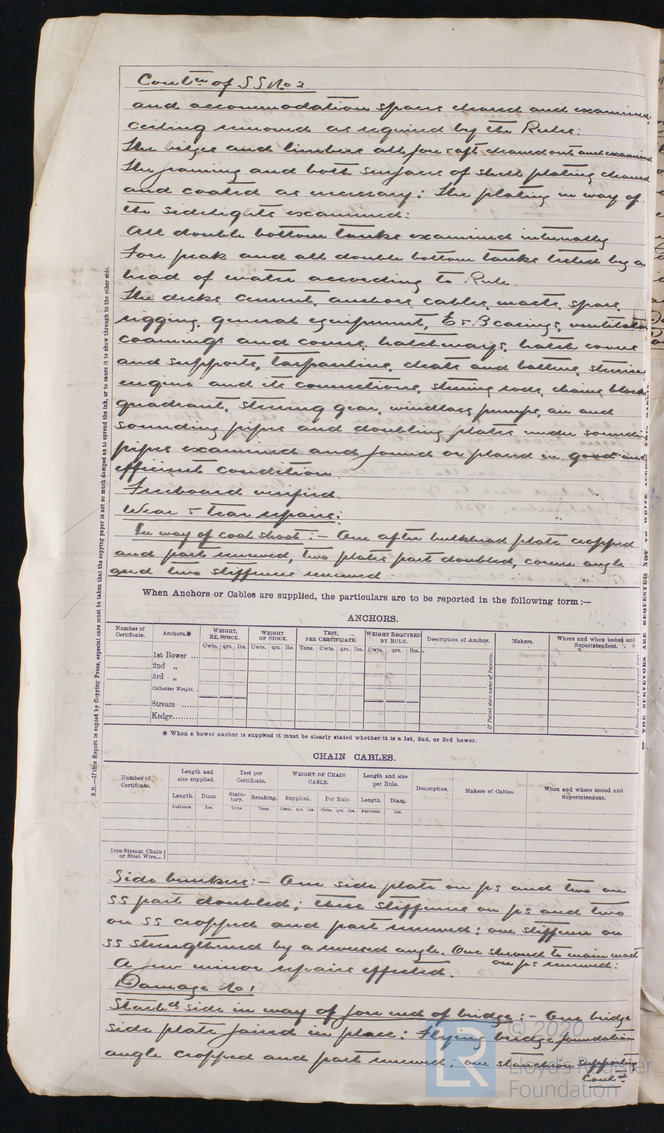 Contn of SS No 2
and accommodation spaces cleared and examined,
ceiling removed as required by the Rules.
The bilges and limbers all fore & aft cleaned out and examined
The framing and both surfaces of shell plating cleaned
and coated as necessary: The plating in way of
the sidelights examined:
All double bottom tanks examined internally
Fore peak and all double bottom tanks tested by a
head of water according to Rule.
The decks cement, anchors cables, masts, spars,
rigging, general equipment, E & B casings, ventilator
coamings and covers, hatchways, hatch covers
and supports, tarpaulins, cleats and battens, steering
engine and its connections, steering rods, chains blocks
quadrant, steering gear, windlass pumps, air and
sounding pipes and doubling plates under sounding
pipes examined and found or placed in good and
efficient condition.
Freeboard verified.
Wear & Tear repairs:
In way of coal shoot:- One after bulkhead plate cropped
and part renewed, two plates part doubled, corner angle
and two stiffeners renewed
When Anchors or Cables are supplied, the particulars are to be reported in the following form:—
ANCHORS.
Number of Certificate. Anchors.* WEIGHT, EX. STOCK. WEIGHT OF STOCK. TEST, PER CERTIFICATE. WEIGHT REQUIRED BY RULE. Description of Anchor. Makers. Where and when tested and Superintendent.
Cwts. qrs. lbs. Cwts. qrs. lbs. Tons. Cwts. qrs. lbs. Cwts. qrs. lbs.
1st Bower ...
2nd „
3rd „
Collective Weight.
Stream ......
Kedge........
* When a bower anchor is supplied it must be clearly stated whether it is a 1st, 2nd, or 3rd bower.
CHAIN CABLES.
Number of Certificate. Length and size supplied. Test per Certificate. WEIGHT OF CHAIN CABLE. Length and size per Rule. Description. Makers of Cables. When and where tested and Superintendent.
Length. Diam. Statutory. Breaking. Supplied. Per Rule. Length. Diam.
Fathoms. Ins. Tons. Tons. Cwts. qrs. lbs. Cwts. qrs. lbs. Fathoms. Ins.
Iron Stream Chain or Steel Wire...
Side bunkers:- One side plate on ps and two on
SS part doubled; three stiffeners on ps and two
on SS cropped and part renewed; one stiffener on
SS strengthened by a reversed angle. One shroud to main mast
on ps renewed:
A few minor repairs effected.
Damage No 1
Starbd side in way of fore end of bridge:- One bridge
side plate faired in place: Flying bridge foundation
angle cropped and part renewed, one stanchion supporting
Contd.
N.B.—If this Report is copied by Copying Press, especial care must be taken that the copying paper is not so much damped as to spread the ink, or to cause it to show through to the other side.
THE SURVEYORS ARE REQUESTED NOT TO WRITE ACROSS THIS MARGIN
LR
© 2020
Lloyd's Register
Foundation